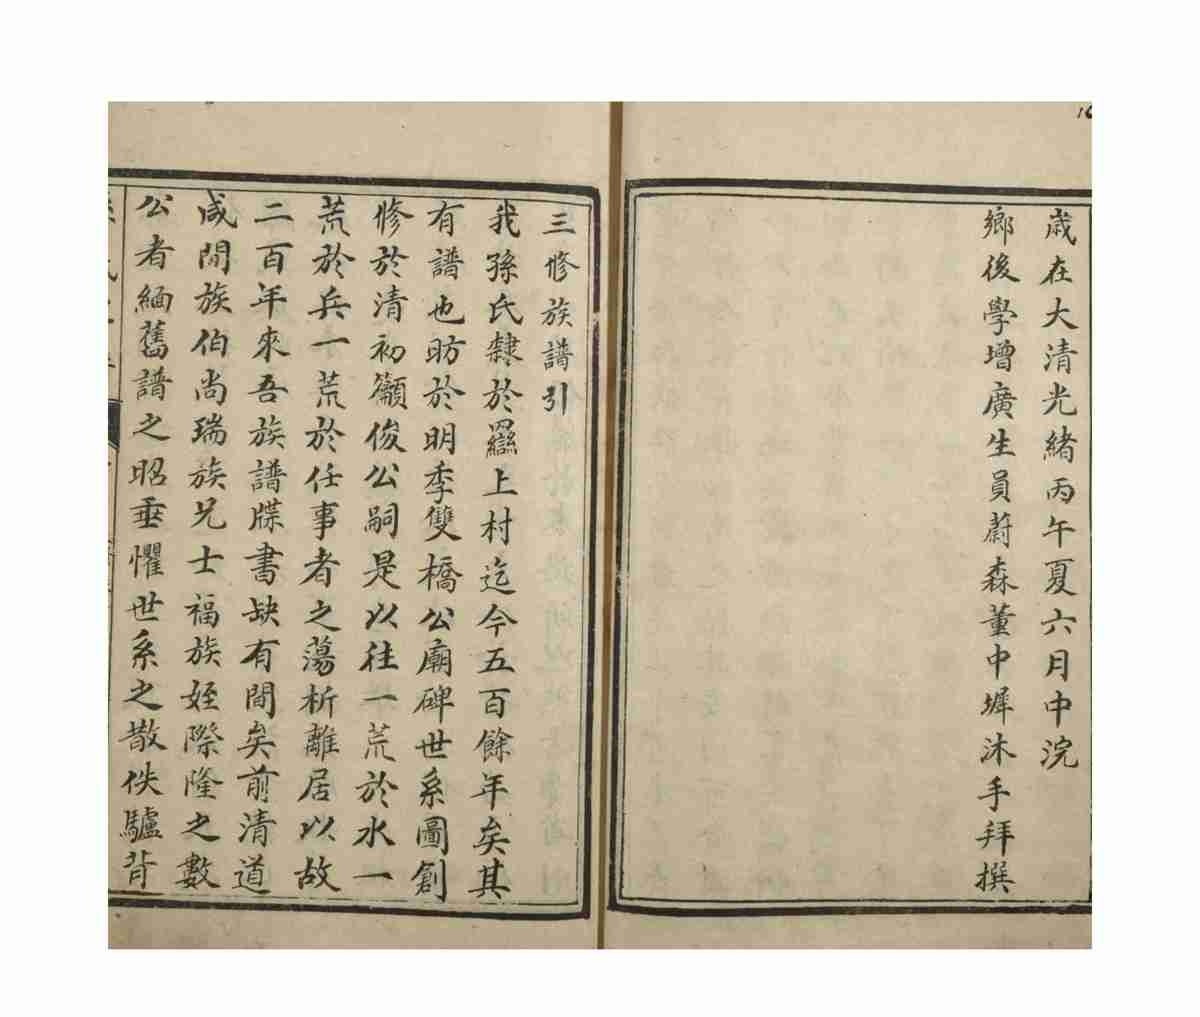 16
歲在大清光緒丙午夏六月中浣
鄉後學增廣生員蔚森董中墀沐手拜撰
三修族譜引
我孫氏隸於羉上村迄今五百餘年矣其
有譜也昉於明季雙橋公廟碑世系圖創
修於清初籲俊公嗣是以往一荒於水一
荒於兵一荒於任事者之蕩析離居以故
二百年來吾族譜牒書缺有間矣前清道
咸間族伯尚瑞族兄士福族姪際隆之數
公者緬舊譜之昭垂懼世系之散佚驢背